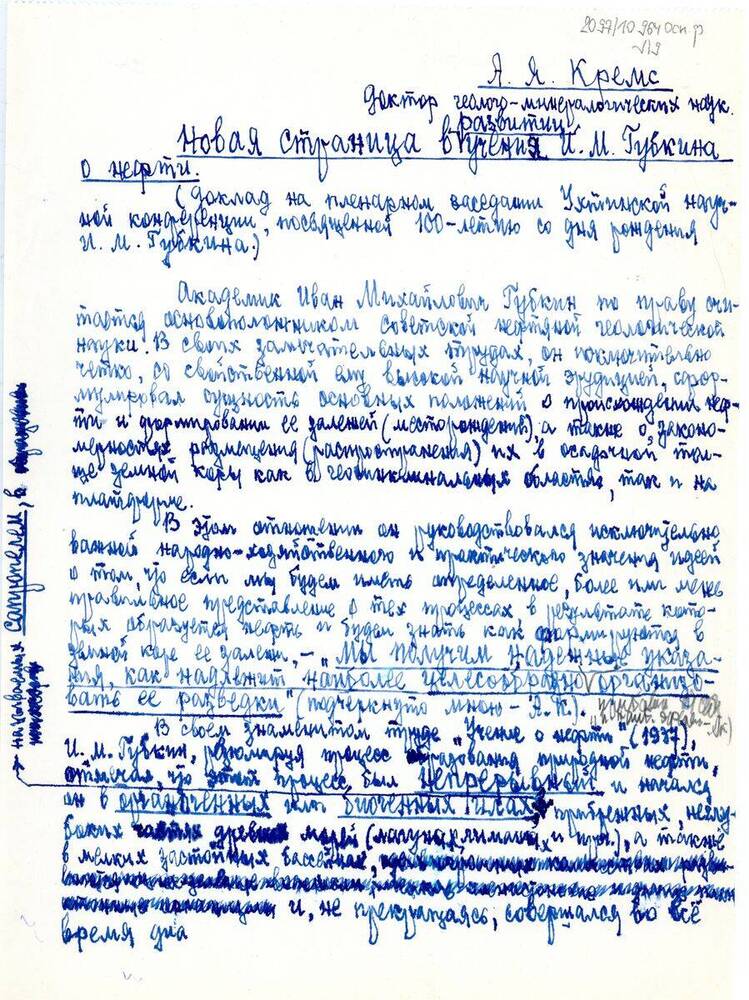 2097/10 964 осн ф
А. Я. Кремс
доктор геолого-минералогических наук.
развитии
Новая страница в учения И. М. Губкина
о нефти.
(доклад на пленарном заседании Ухтинской науч-
ной конференции, посвященной 100-летию со дня рождения
И. М. Губкина.)
Академик Иван Михайлович Губкин по праву счи-
тается основоположником советской нефтяной геологической
науки. В своих замечательных трудах, он исключительно
четко, со свойственной ему высокой научной эрудицией, сфор-
мулировал сущность основных положений о происхождении неф-
ти и формировании ее залежей (месторождений), а также о законо-
мерностях размещения (распространения) их в осадочной тол-
ще земной коры как в геосинклинальных областях, так и на
платформе.
В этом отношении он руководствовался исключительно
важной народно-хозяйственного и практического значения идеей
о том, что если мы будем иметь определенное, более или менее
правильное представление о тех процессах в результате кото-
рых образуется нефть и будем знать как формируются в
земной коре ее залежи, – „Мы получим надежные указа-
ния, как надлежит наиболее целесообразно организо-
вать ее разведки" (подчеркнуто мною – А. К.).
В своем знаменитом труде „Учение о нефти" (1937),
И. М. Губкин, рассматривая процесс образования природной нефти,
отмечал, что этот процесс был непрерывный и начался
он в органогенных или биогенных илах прибрежных, неглу-
боких частях древних морей (лагунах, лиманах и пр.), а также
в мелких застойных бассейнах,
и, не прекращаясь, совершался во всё
время диа
называемых сапропелем, в